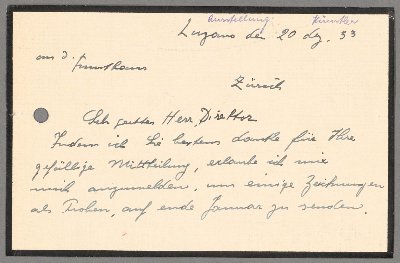 Ausstellung: Künstler
Lugano den 20 dz. 33
an d. Kunsthaus
Zürich
Sehr geehrter Herr Direktor
Indem ich Sie bestens danke für Ihre
gefällige Mittheilung, erlaube ich mir
mich anzumelden, um einige Zeichnungen
als Proben, auf ende Januar zu senden.